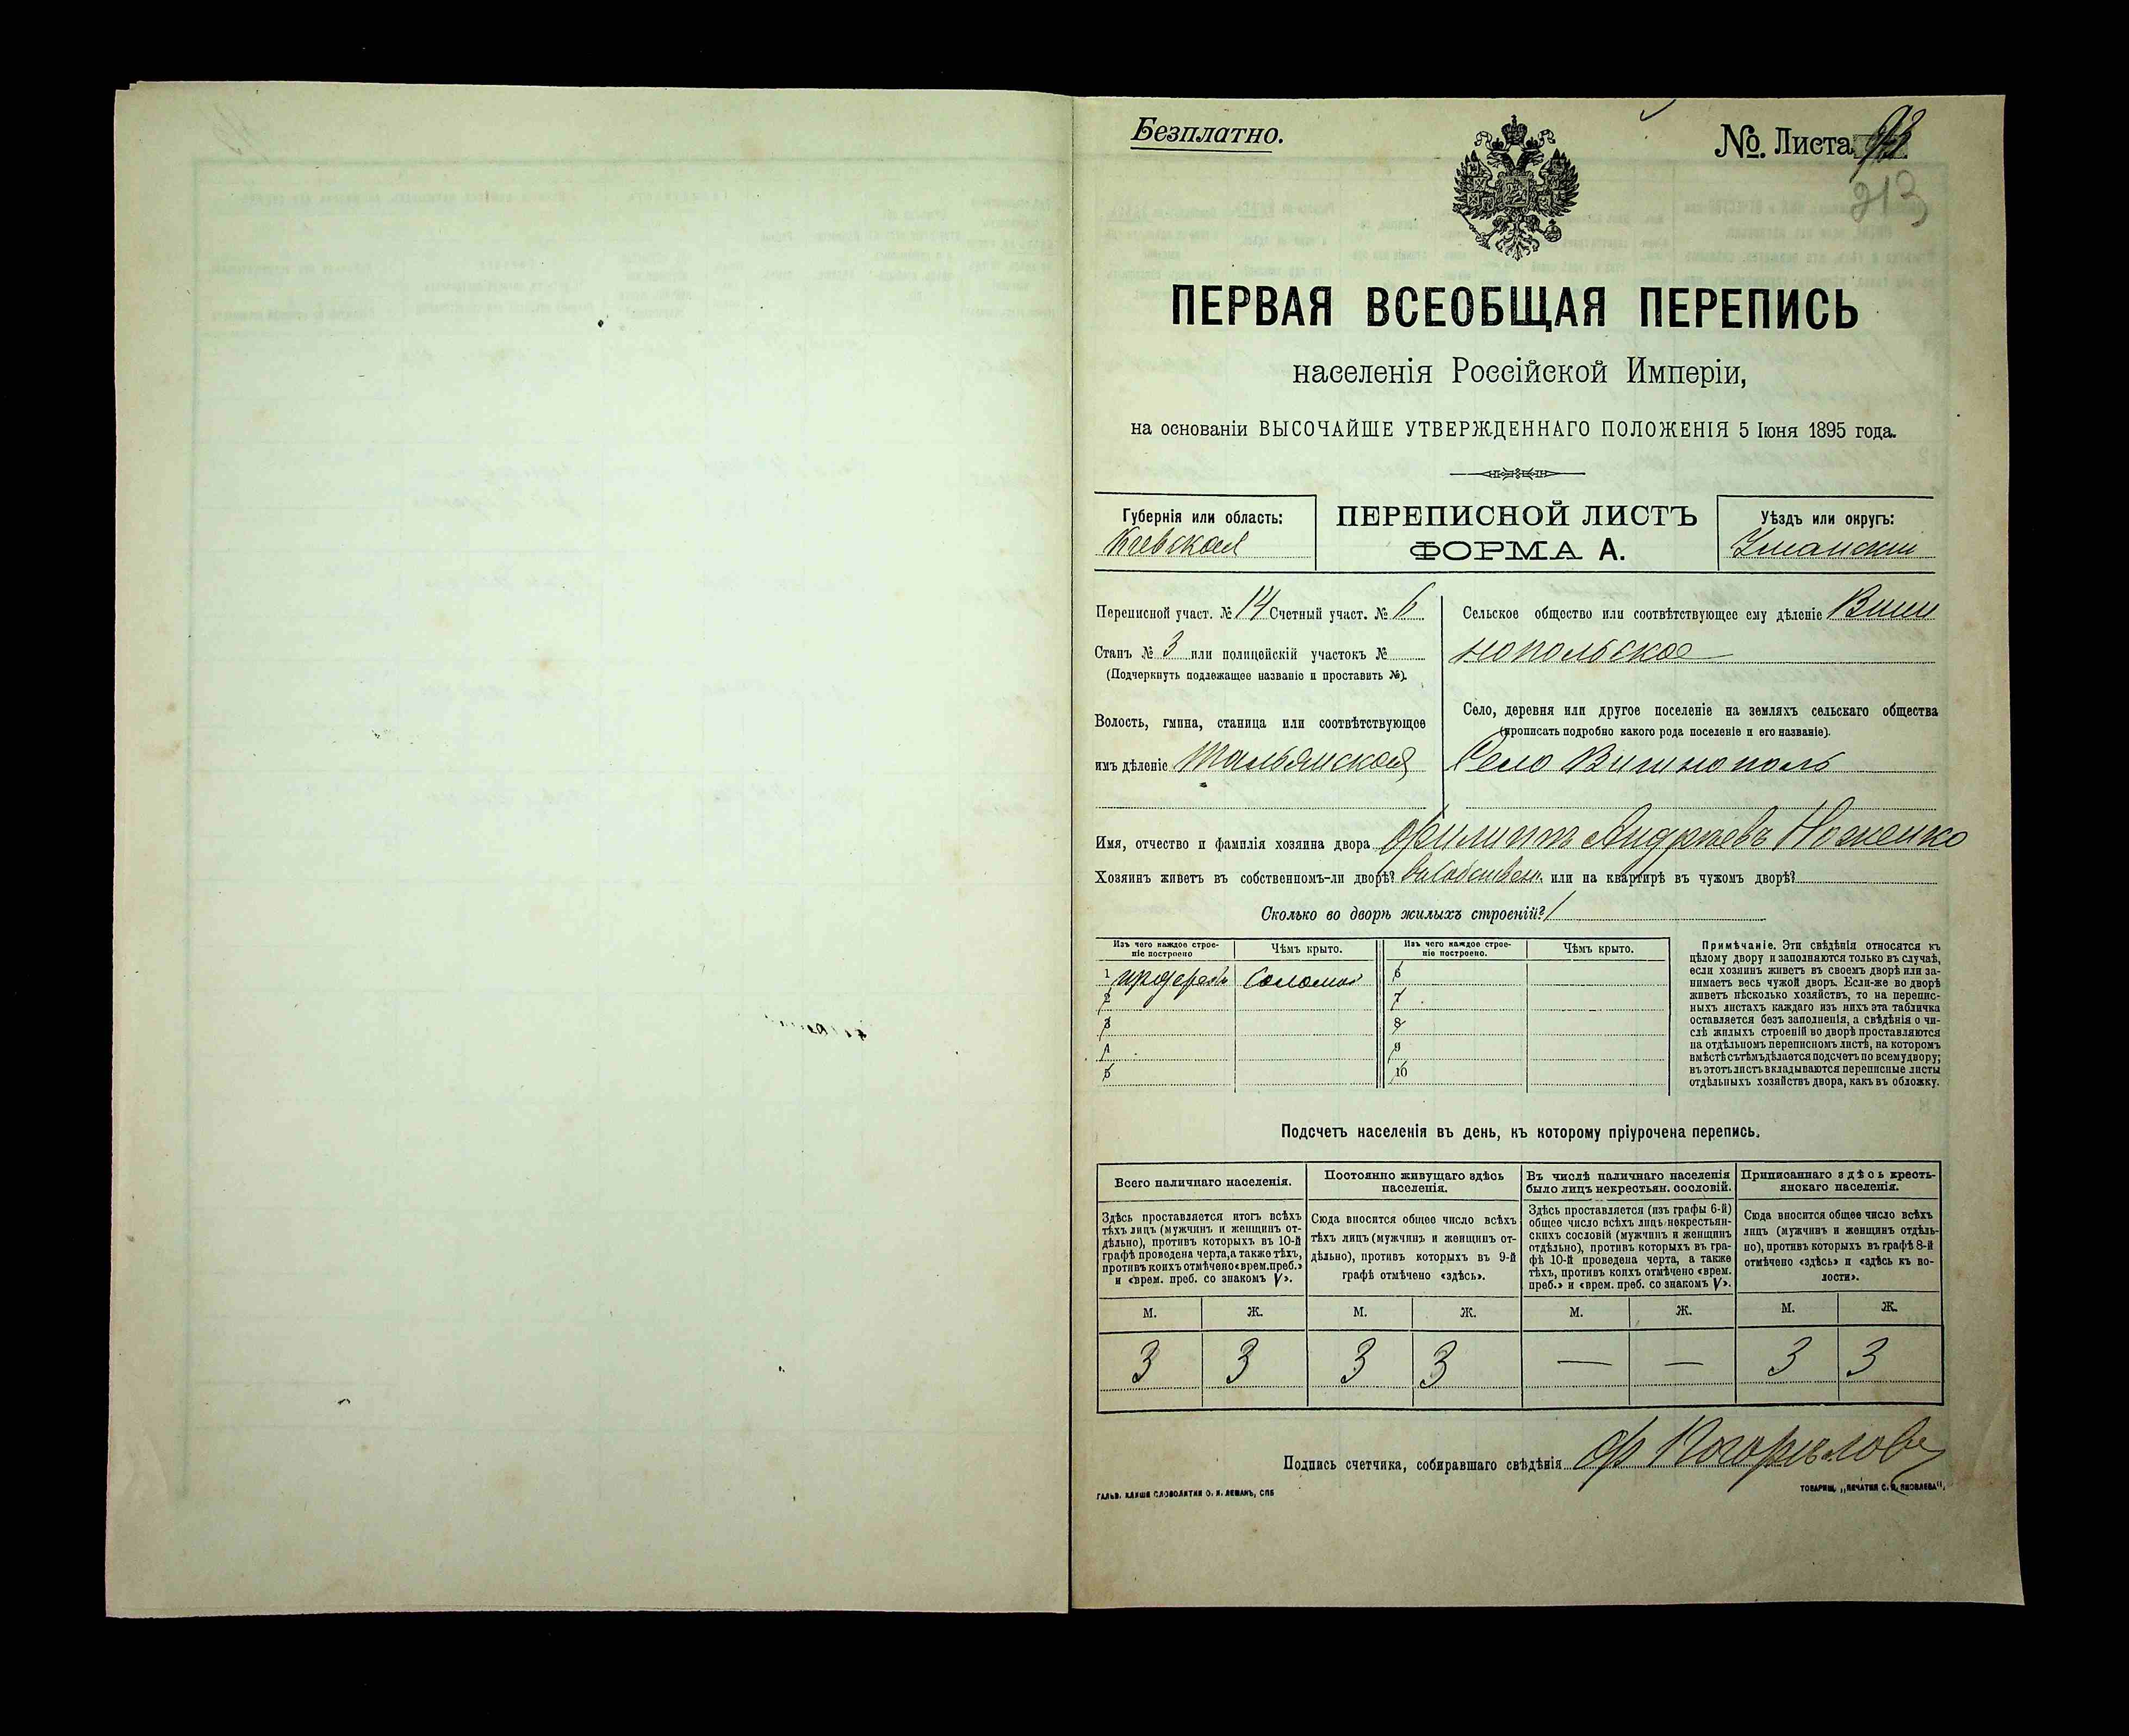 Безплатно.
№. Листа 93
213
ПЕРВАЯ ВСЕОБЩАЯ ПЕРЕПИСЬ
населенія Россійской Имперіи,
на основаніи ВЫСОЧАЙШЕ УТВЕРЖДЕННАГО ПОЛОЖЕНІЯ 5 Іюня 1895 года.
Губернія или область:
Кіевская
ПЕРЕПИСНОЙ ЛИСТЪ
ФОРМА А.
Уѣздъ или округъ:
Уманскій
Переписной участ. № 14 Счетный участ. № 6
Станъ № 3 или полицейскій участокъ №
(Подчеркнуть подлежащее названіе и проставить №).
Волость, гмина, станица или соотвѣтствующее
имъ дѣленіе Тальянская
Сельское общество или соотвѣтствующее ему дѣленіе Виши
нопольское
Село, деревня или другое поселеніе на земляхъ сельскаго общества
(прописать подробно какого рода поселеніе и его названіе).
Село Вишнополь
Имя, отчество и фамилія хозяина двора Филиппъ Андреевъ Ноженко
Хозяинъ живетъ въ собственномъ-ли дворѣ? въ собствен. или на квартирѣ въ чужомъ дворѣ?
Сколько во дворѣ жилыхъ строеній? 1
Изъ чего каждое строе-
ніе построено
Чѣмъ крыто.
Изъ чего каждое строе-
ніе построено.
Чѣмъ крыто.
1 Соломой
2
3
4
5
6
7
8
9
10
Примѣчаніе. Эти свѣдѣнія относятся къ
цѣлому двору и заполняются только въ случаѣ,
если хозяинъ живетъ въ своемъ дворѣ или за-
нимаетъ весь чужой дворъ. Если-же во дворѣ
живетъ нѣсколько хозяйствъ, то на перепис-
ныхъ листахъ каждаго изъ нихъ эта табличка
оставляется безъ заполненія, а свѣдѣнія о чи-
слѣ жилыхъ строеній во дворѣ проставляются
на отдѣльномъ переписномъ листѣ, на которомъ
вмѣстѣ съ тѣмъ дѣлается подсчетъ по всему двору;
въ этотъ листъ вкладываются переписные листы
отдѣльныхъ хозяйствъ двора, какъ въ обложку.
Подсчетъ населенія въ день, къ которому пріурочена перепись.
Всего наличнаго населенія.
Постоянно живущаго здѣсь
населенія.
Въ числѣ наличнаго населенія
было лицъ некрестьян. сословій.
Приписаннаго здѣсь кресть-
янскаго населенія.
Здѣсь проставляется итогъ всѣхъ
тѣхъ лицъ (мужчинъ и женщинъ от-
дѣльно), противъ которыхъ въ 10-й
графѣ проведена черта, а также тѣхъ,
противъ коихъ отмѣчено «врем. преб.»
и «врем. преб. со знакомъ V».
Сюда вносится общее число всѣхъ
тѣхъ лицъ (мужчинъ и женщинъ от-
дѣльно), противъ которыхъ въ 9-й
графѣ отмѣчено «здѣсь».
Здѣсь проставляется (изъ графы 6-й)
общее число всѣхъ лицъ некрестьян-
скихъ сословій (мужчинъ и женщинъ
отдѣльно), противъ которыхъ въ гра-
фѣ 10-й проведена черта, а также
тѣхъ, противъ коихъ отмѣчено «врем.
преб.» и «врем. преб. со знакомъ V».
Сюда вносится общее число всѣхъ
лицъ (мужчинъ и женщинъ отдѣль-
но), противъ которыхъ въ графѣ 8-й
отмѣчено «здѣсь» и «здѣсь къ во-
лости».
М. Ж. М. Ж. М. Ж. М. Ж.
3 3 3 3 — — 3 3
Подпись счетчика, собиравшаго свѣдѣнія Ф Погорѣловъ
ГАЛЬВ. КЛИШЕ СЛОВОЛИТНИ О. И. ЛЕМАНЪ, СПБ
ТОВАРИЩ. „ПЕЧАТНЯ С. П. ЯКОВЛЕВА".